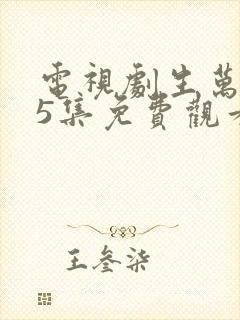 電視劇生萬
5集免費觀
王叄柒